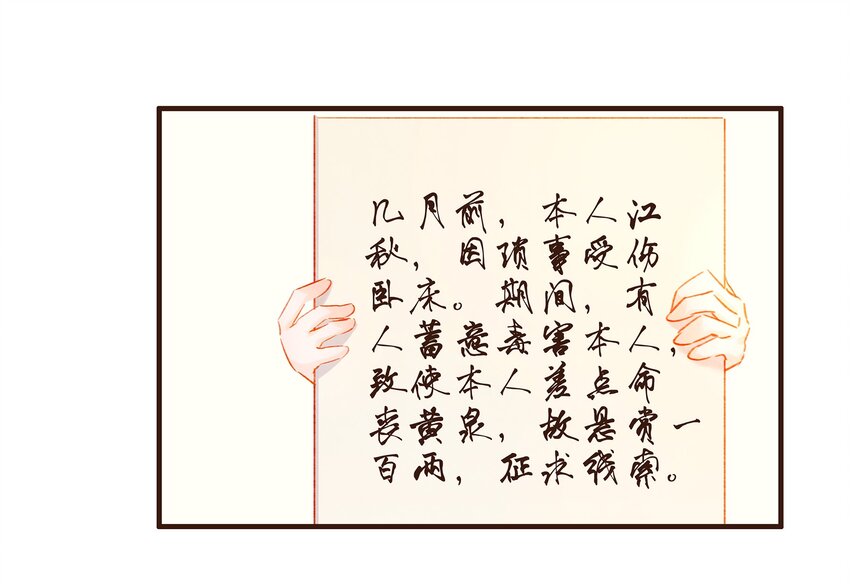 几月前，本人江
秋，因琐事受伤
卧床。期间，有
人蓄意毒害本人，
致使本人差点命
丧黄泉，故悬赏一
百两，征求线索。